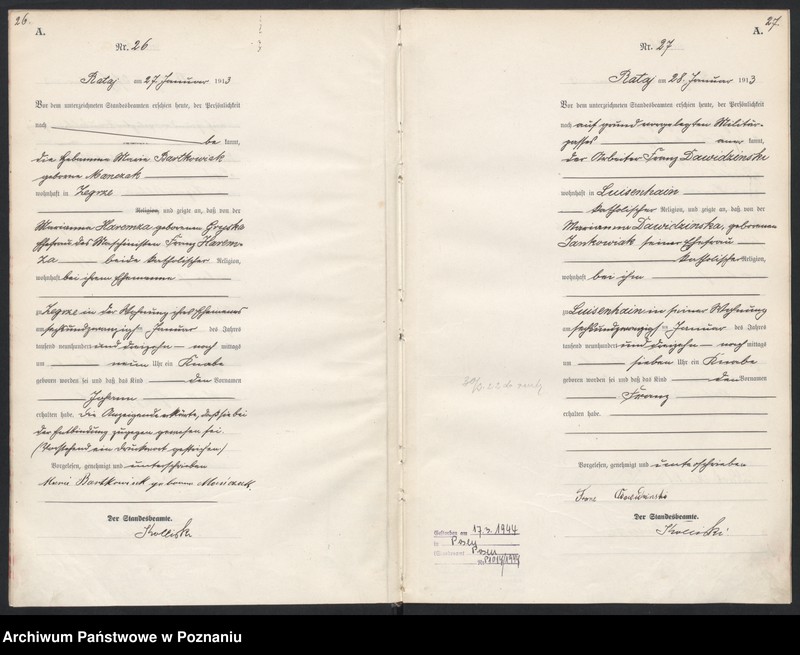 26.
A.
Nr. 26
Rataj am 27. Januar 1913
Vor dem unterzeichneten Standesbeamten erschien heute, der Persönlichkeit
nach
be kannt,
die Hebamme Marie Bartkowiak
geborene Manczak
wohnhaft in Zegrze
Religion, und zeigte an, daß von der
Marianna Haremza geborenen
Ehefrau des Maschinisten Franz Harem-
za beide katholischer Religion,
wohnhaft bei ihrem Ehemanne
zu Zegrze in der Wohnung ihres Ehemannes
am sechsundzwanzigsten Januar des Jahres
tausend neunhundert und dreizehn nach mittags
um neun Uhr ein Knabe
geboren worden sei und daß das Kind den Vornamen
Johann
erhalten habe. Die Anzeigende erklärte, daß sie bei
der Entbindung zugegen gewesen sei.
(Vorstehend ein Druckwort gestrichen.)
Vorgelesen, genehmigt und unterschrieben
Marie Bartkowiak geborene
Der Standesbeamte.
27.
A.
Nr. 27
Rataj am 28. Januar 1913
Vor dem unterzeichneten Standesbeamten erschien heute, der Persönlichkeit
nach auf Grund vorgelegten Militär-
passes aner kannt,
der Arbeiter Franz Dawidzinski
wohnhaft in Luisenhain
katholischer Religion, und zeigte an, daß von der
Marianna Dawidzinska, geborenen
Jankowiak seiner Ehefrau
katholischer Religion,
wohnhaft bei ihm
zu Luisenhain in seiner Wohnung
am sechsundzwanzigsten Januar des Jahres
tausend neunhundert und dreizehn nach mittags
um sieben Uhr ein Knabe
geboren worden sei und daß das Kind den Vornamen
Franz
erhalten habe.
Vorgelesen, genehmigt und unterschrieben
Franz Dawidzinski
Der Standesbeamte.
Gestorben am 17.3.1944
in Posen
Standesamt Posen
Nr.
Archiwum Państwowe w Poznaniu